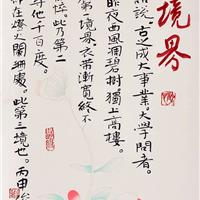 境界
説。古之成大事業。大学問者。
昨夜西风凋碧樹。獨上高樓。
第一境界。衣带漸寬終不
悴。此乃第二
尋他千百度。
在燈火闌珊處。此第三境也。丙申